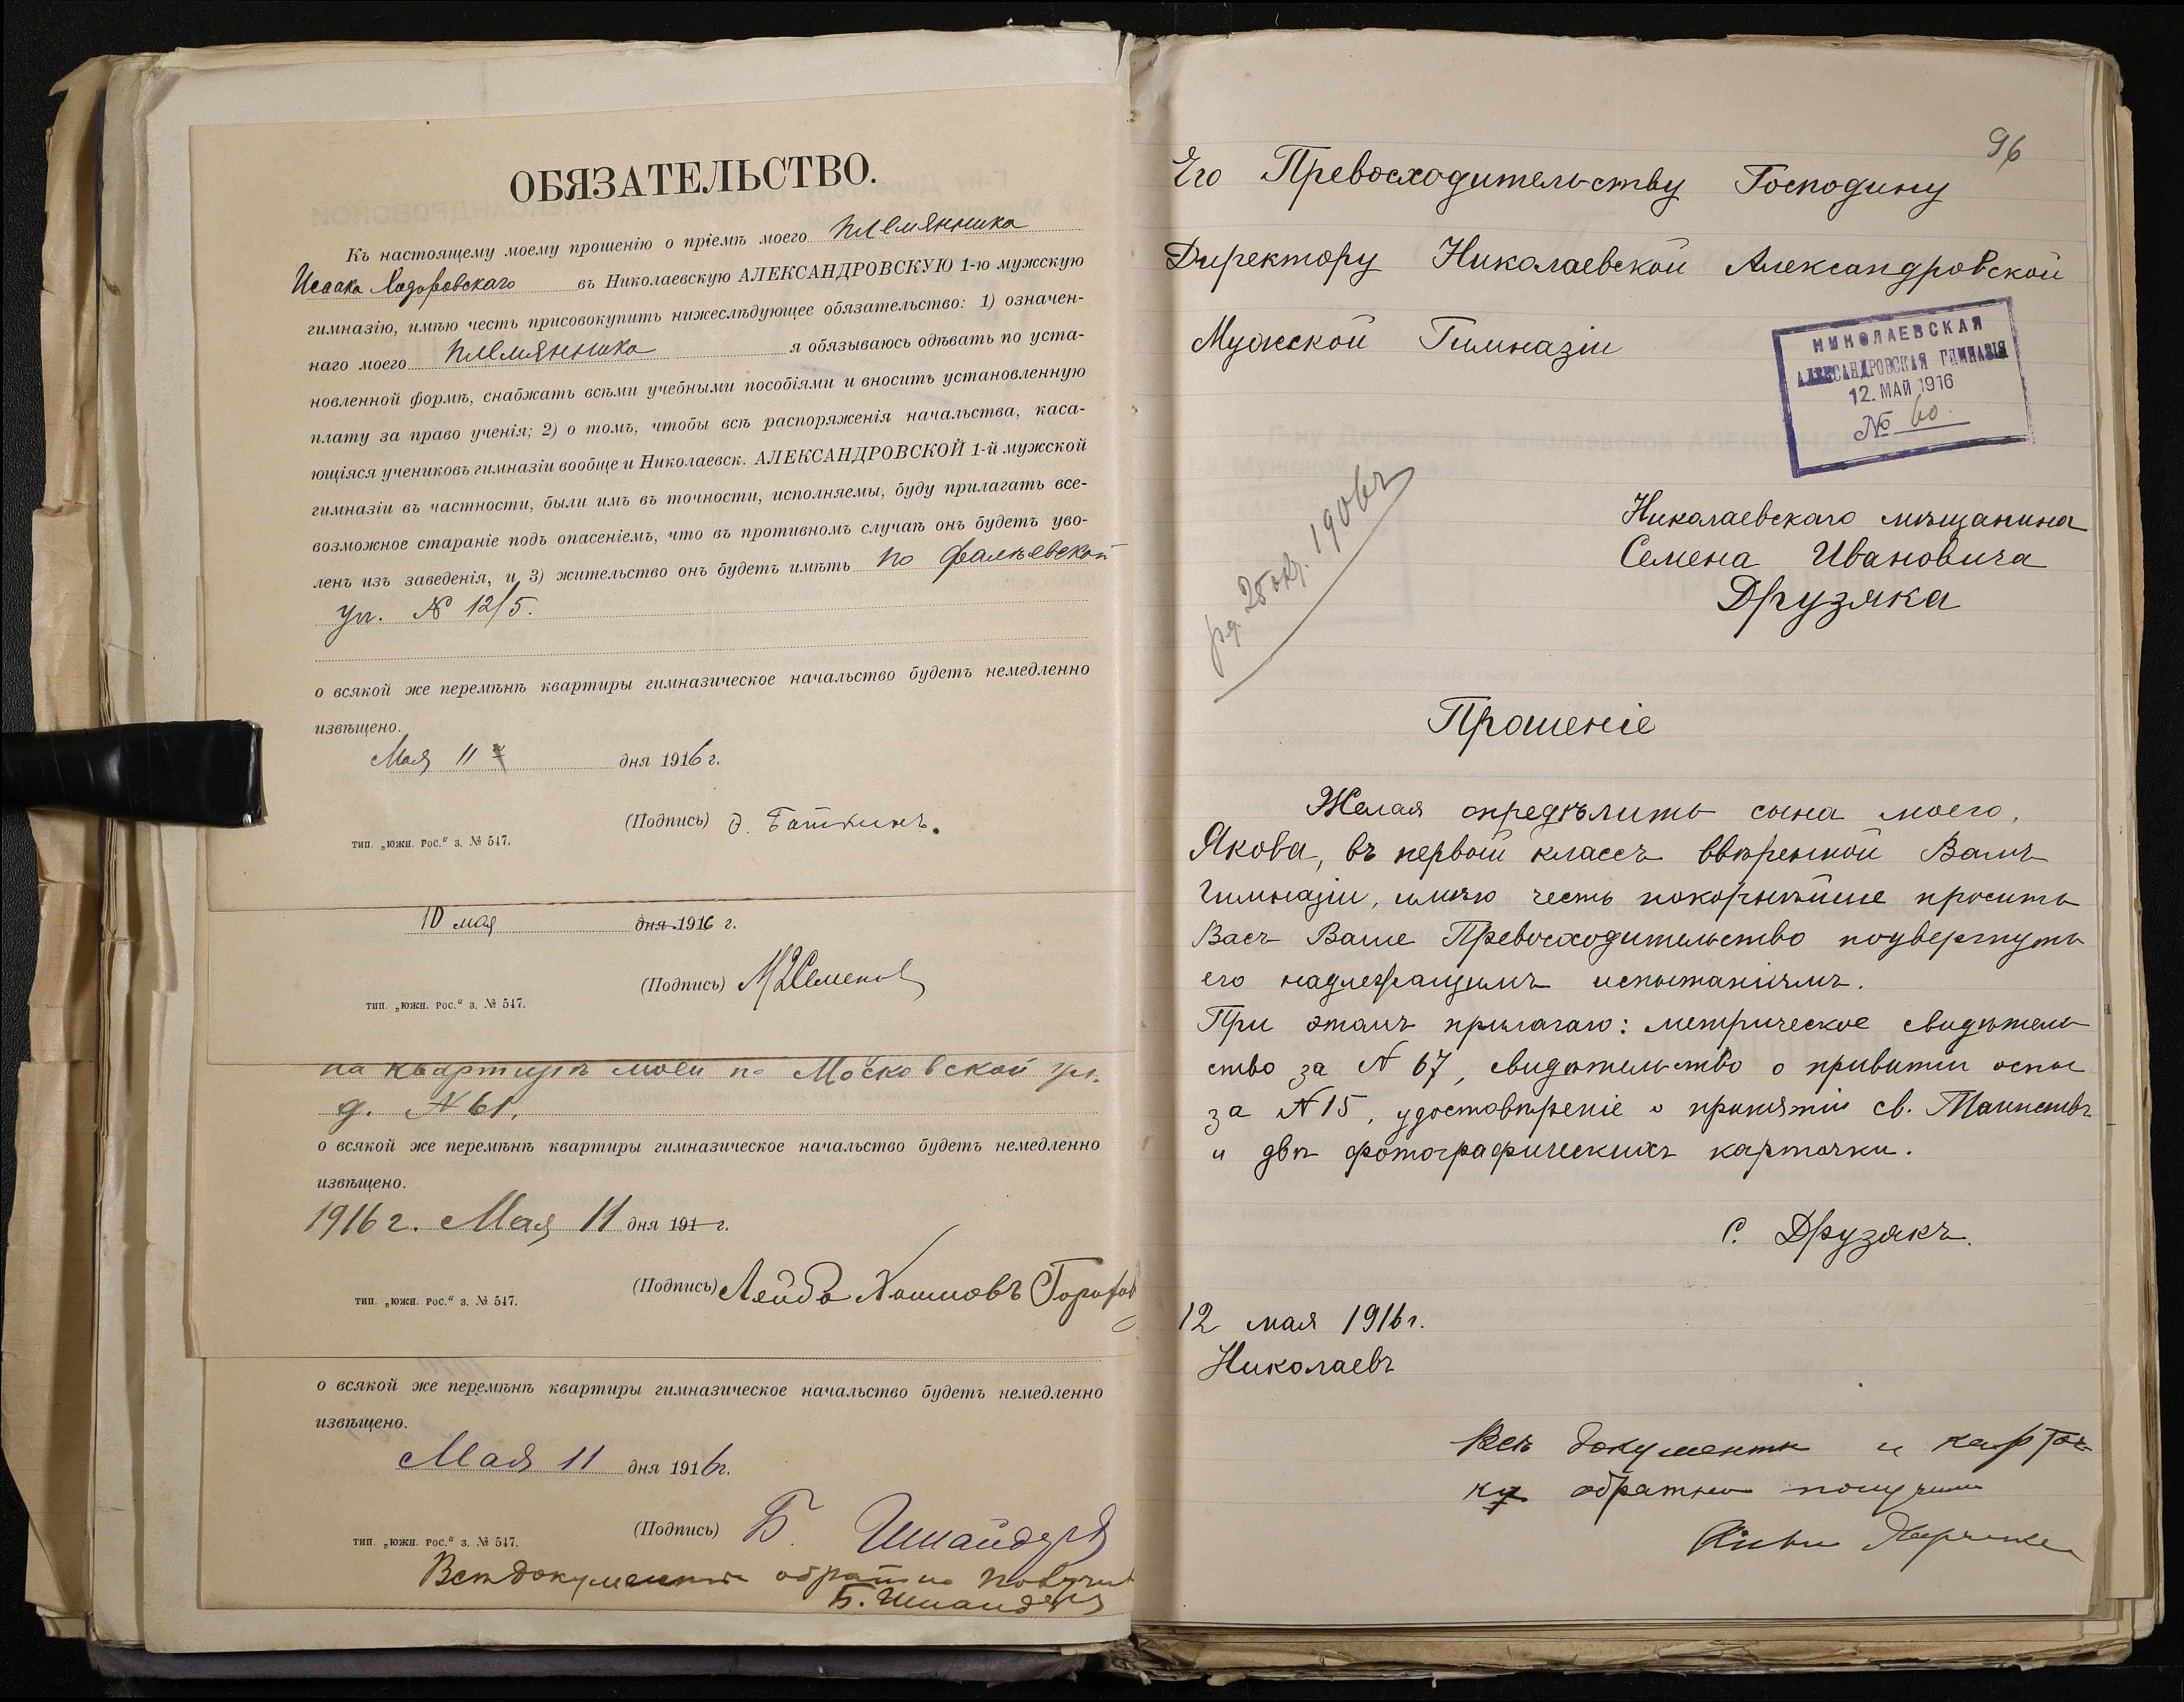 ОБЯЗАТЕЛЬСТВО.
Къ настоящему моему прошенію о пріемѣ моего племянника
Исаака Ходоровскаго въ Николаевскую АЛЕКСАНДРОВСКУЮ 1-ю мужскую
гимназію, имѣю честь присовокупить нижеслѣдующее обязательство: 1) означен-
наго моего племянника я обязываюсь одѣвать по уста-
новленной формѣ, снабжать всѣми учебными пособіями и вносить установленную
плату за право ученія; 2) о томъ, чтобы всѣ распоряженія начальства, каса-
ющіяся учениковъ гимназіи вообще и Николаевск. АЛЕКСАНДРОВСКОЙ 1-й мужской
гимназіи въ частности, были имъ въ точности, исполняемы, буду прилагать все-
возможное стараніе подъ опасеніемъ, что въ противномъ случаѣ онъ будетъ уво-
ленъ изъ заведенія, и 3) жительство онъ будетъ имѣть по Фалѣевской
ул. № 12/5.
о всякой же перемѣнѣ квартиры гимназическое начальство будетъ немедленно
извѣщено.
Мая 11 дня 1916 г.
(Подпись) Э. Баткинъ.
тип. „южн. рос.“ з. № 547.
10 мая дня 1916 г.
(Подпись) Семенов
тип. „южн. рос.“ з. № 547.
на квартирѣ моей по Московской ул.
д. № 61.
о всякой же перемѣнѣ квартиры гимназическое начальство будетъ немедленно
извѣщено.
1916 г. Мая 11 дня 191 г.
(Подпись)
тип. „южн. рос.“ з. № 547.
о всякой же перемѣнѣ квартиры гимназическое начальство будетъ немедленно
извѣщено.
Мая 11 дня 1916 г.
(Подпись) Б. Шнайдеръ
тип. „южн. рос.“ з. № 547.
Всѣ документы обратно получил
Б. Шнайдеръ
96
Его Превосходительству Господину
Директору Николаевской Александровской
Мужской Гимназіи
НИКОЛАЕВСКАЯ
АЛЕКСАНДРОВСКАЯ ГИМНАЗІЯ
12. МАЙ 1916
№ 60.
Николаевскаго мѣщанина
Семена Ивановича
Друзяка
рд. 28 окт. 1906 г
Прошеніе
Желая опредѣлить сына моего,
Якова, въ первый классъ ввѣренной Вамъ
Гимназіи, имѣю честь покорнѣйше просить
Васъ Ваше Превосходительство подвергнуть
его надлежащимъ испытаніямъ.
При этомъ прилагаю: метрическое свидѣтель
ство за № 67, свидѣтельство о привитіи оспы
за № 15, удостовѣреніе о принятіи св. Таинствъ
и двѣ фотографическихъ карточки.
С. Друзякъ.
12 мая 1916 г.
Николаевъ
Всѣ документы и карточ
ку обратно получил